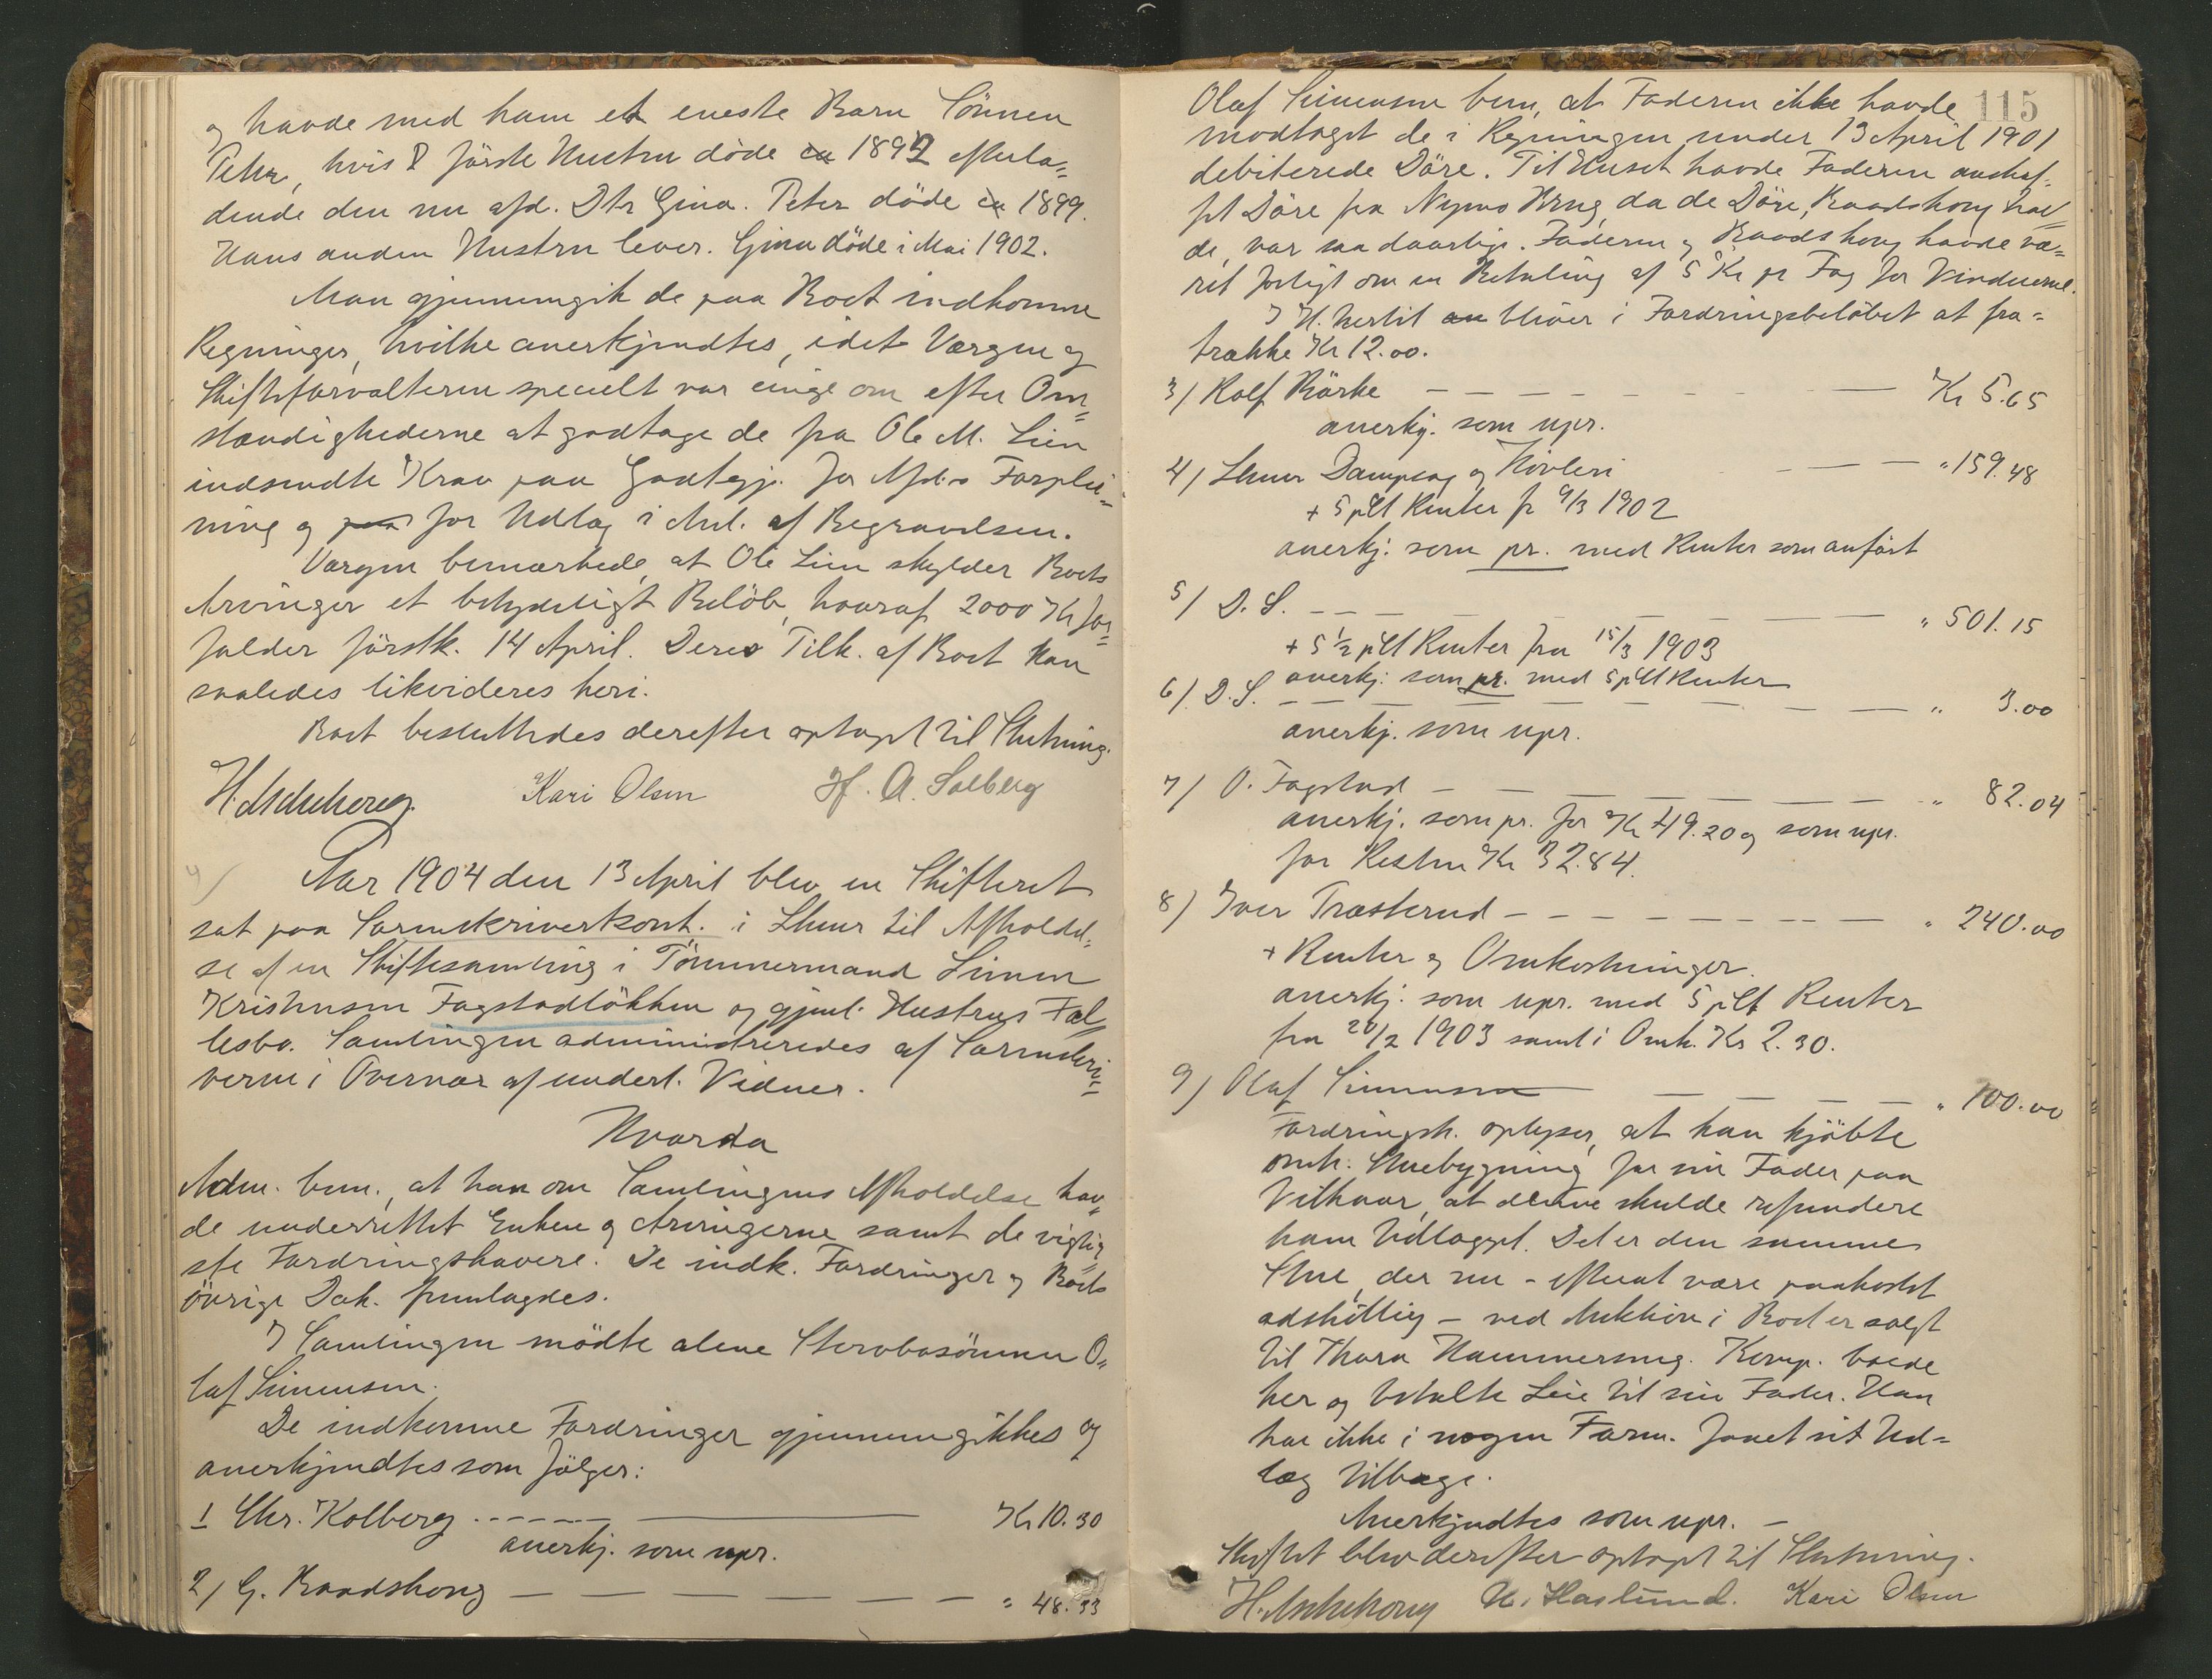 og havde med ham et eneste Barn Sönnen
Peter, hvis förste Hustru döde ca 1892 efterla=
dende den nu afd. Dtr Gina. Peter döde ca 1899.
Hans anden Hustru lever. Gina döde i Mai 1902.
Man gjennemgik de paa Boet indkomne
Regninger, hvilke anerkjendtes, idet Værgen og
Skifteforvalteren specielt var enige om efter Om=
stændighederne at godtage de fra Ole M. Lien
indsendte Krav paa Godtgj. for Afd.s Forplei=
ning og paa for Udlæg i Anl. af Begravelsen.
Værgen bemærkede, at Ole Lien skylder Boets
Arvinger et betydeligt Belöb, hvoraf 2000 Kr for=
falder förstk. 14 April. Deres Tilk. af Boet kan
saaledes likvideres heri.
Boet besluttedes derefter optaget til Slutning.
H. Aschehoug Kari Olsen H. A. Solberg
4/
Aar 1904 den 13 April blev en Skifteret
sat paa Sorenskriverkont. i Lhmr til Afholdel=
se af en Skiftesamling i Tömmermand Simen
Kristensen Fagstadlökken og gjenl. Hustrus Fæl=
lesbo. Samlingen administreredes af Sorenskri=
veren i Overvær af undert. Vidner.
Hvorda
Adm. bem., at han om Samlingens Afholdelse hav=
de underrettet Enken og Arvingerne samt de vigtig=
ste Fordringshavere. De indk. Fordringer og Boets
övrige Dok. fremlagdes.
I Samlingen mödte alene Stervbosönnen O=
laf Simensen.
De indkomne Fordringer gjennemgikkes og
anerkjendtes som fölger:
1 Chr. Kolberg - - - - - Kr 10.30
anerkj. som upr.
2/ G. Raadshoug — — — — — " 48.33
115
Olaf Simensen bem, at Faderen ikke havde
modtaget de i Regningen under 13 April 1901
debiterede Döre. Til Huset havde Faderen anskaf=
fet Döre fra Nymo Brug, da de Döre, Raadshoug hav=
de, var saa daarlige. Faderen og Raadshoug havde væ=
ret forligt om en Betaling af 5 Kr pr Fag for Vinduerne.
I H. hertil an bliver i Fordringsbelöbet at fra=
trække Kr 12.00.
3/ Rolf Börke — — — — Kr 5.65
anerkj. som upr.
4/ Lhmr Dampsag og Hövleri — — — " 159.48
+ 5 pCt Renter fr 9/3 1902
anerkj. som pr. med Renter som anfört
5/ D. S. — — — — " 501.15
+ 5 ½ pCt Renter fra 15/3 1903
anerkj. som pr. med 5 pCt Renter
6/ D. S. — — — — " 3.00
anerkj. som upr.
7/ O. Fagstad — — — — " 82.04
anerkj. som pr. for Kr 49.20 og som upr.
for Resten Kr 32.84.
8/ Iver Træsterud — — — — " 240.00
+ Renter og Omkostninger.
anerkj. som upr. med 5 pCt Renter
fra 20/2 1903 samt i Omk. Kr 2.30.
9/ Olaf Simensen — — — — " 100.00
Fordringsh. oplyser, at han kjöbte
omh. Stuebygning for sin Fader paa
Vilkaar, at denne skulde refundere
ham Udlægget. Det er den samme
Stue, der nu - efterat være paakostet
adskillig - ved Auktion i Boet er solgt
til Thora Hammerseng. Komp. boede
her og betalte Leie til sin Fader. Han
har ikke i nogen Form. faaet sit Ud=
læg tilbage.
Anerkjendtes som upr. —
Skiftet blev derefter optaget til Slutning.
H. Aschehoug H. Haslund. Kari Olsen